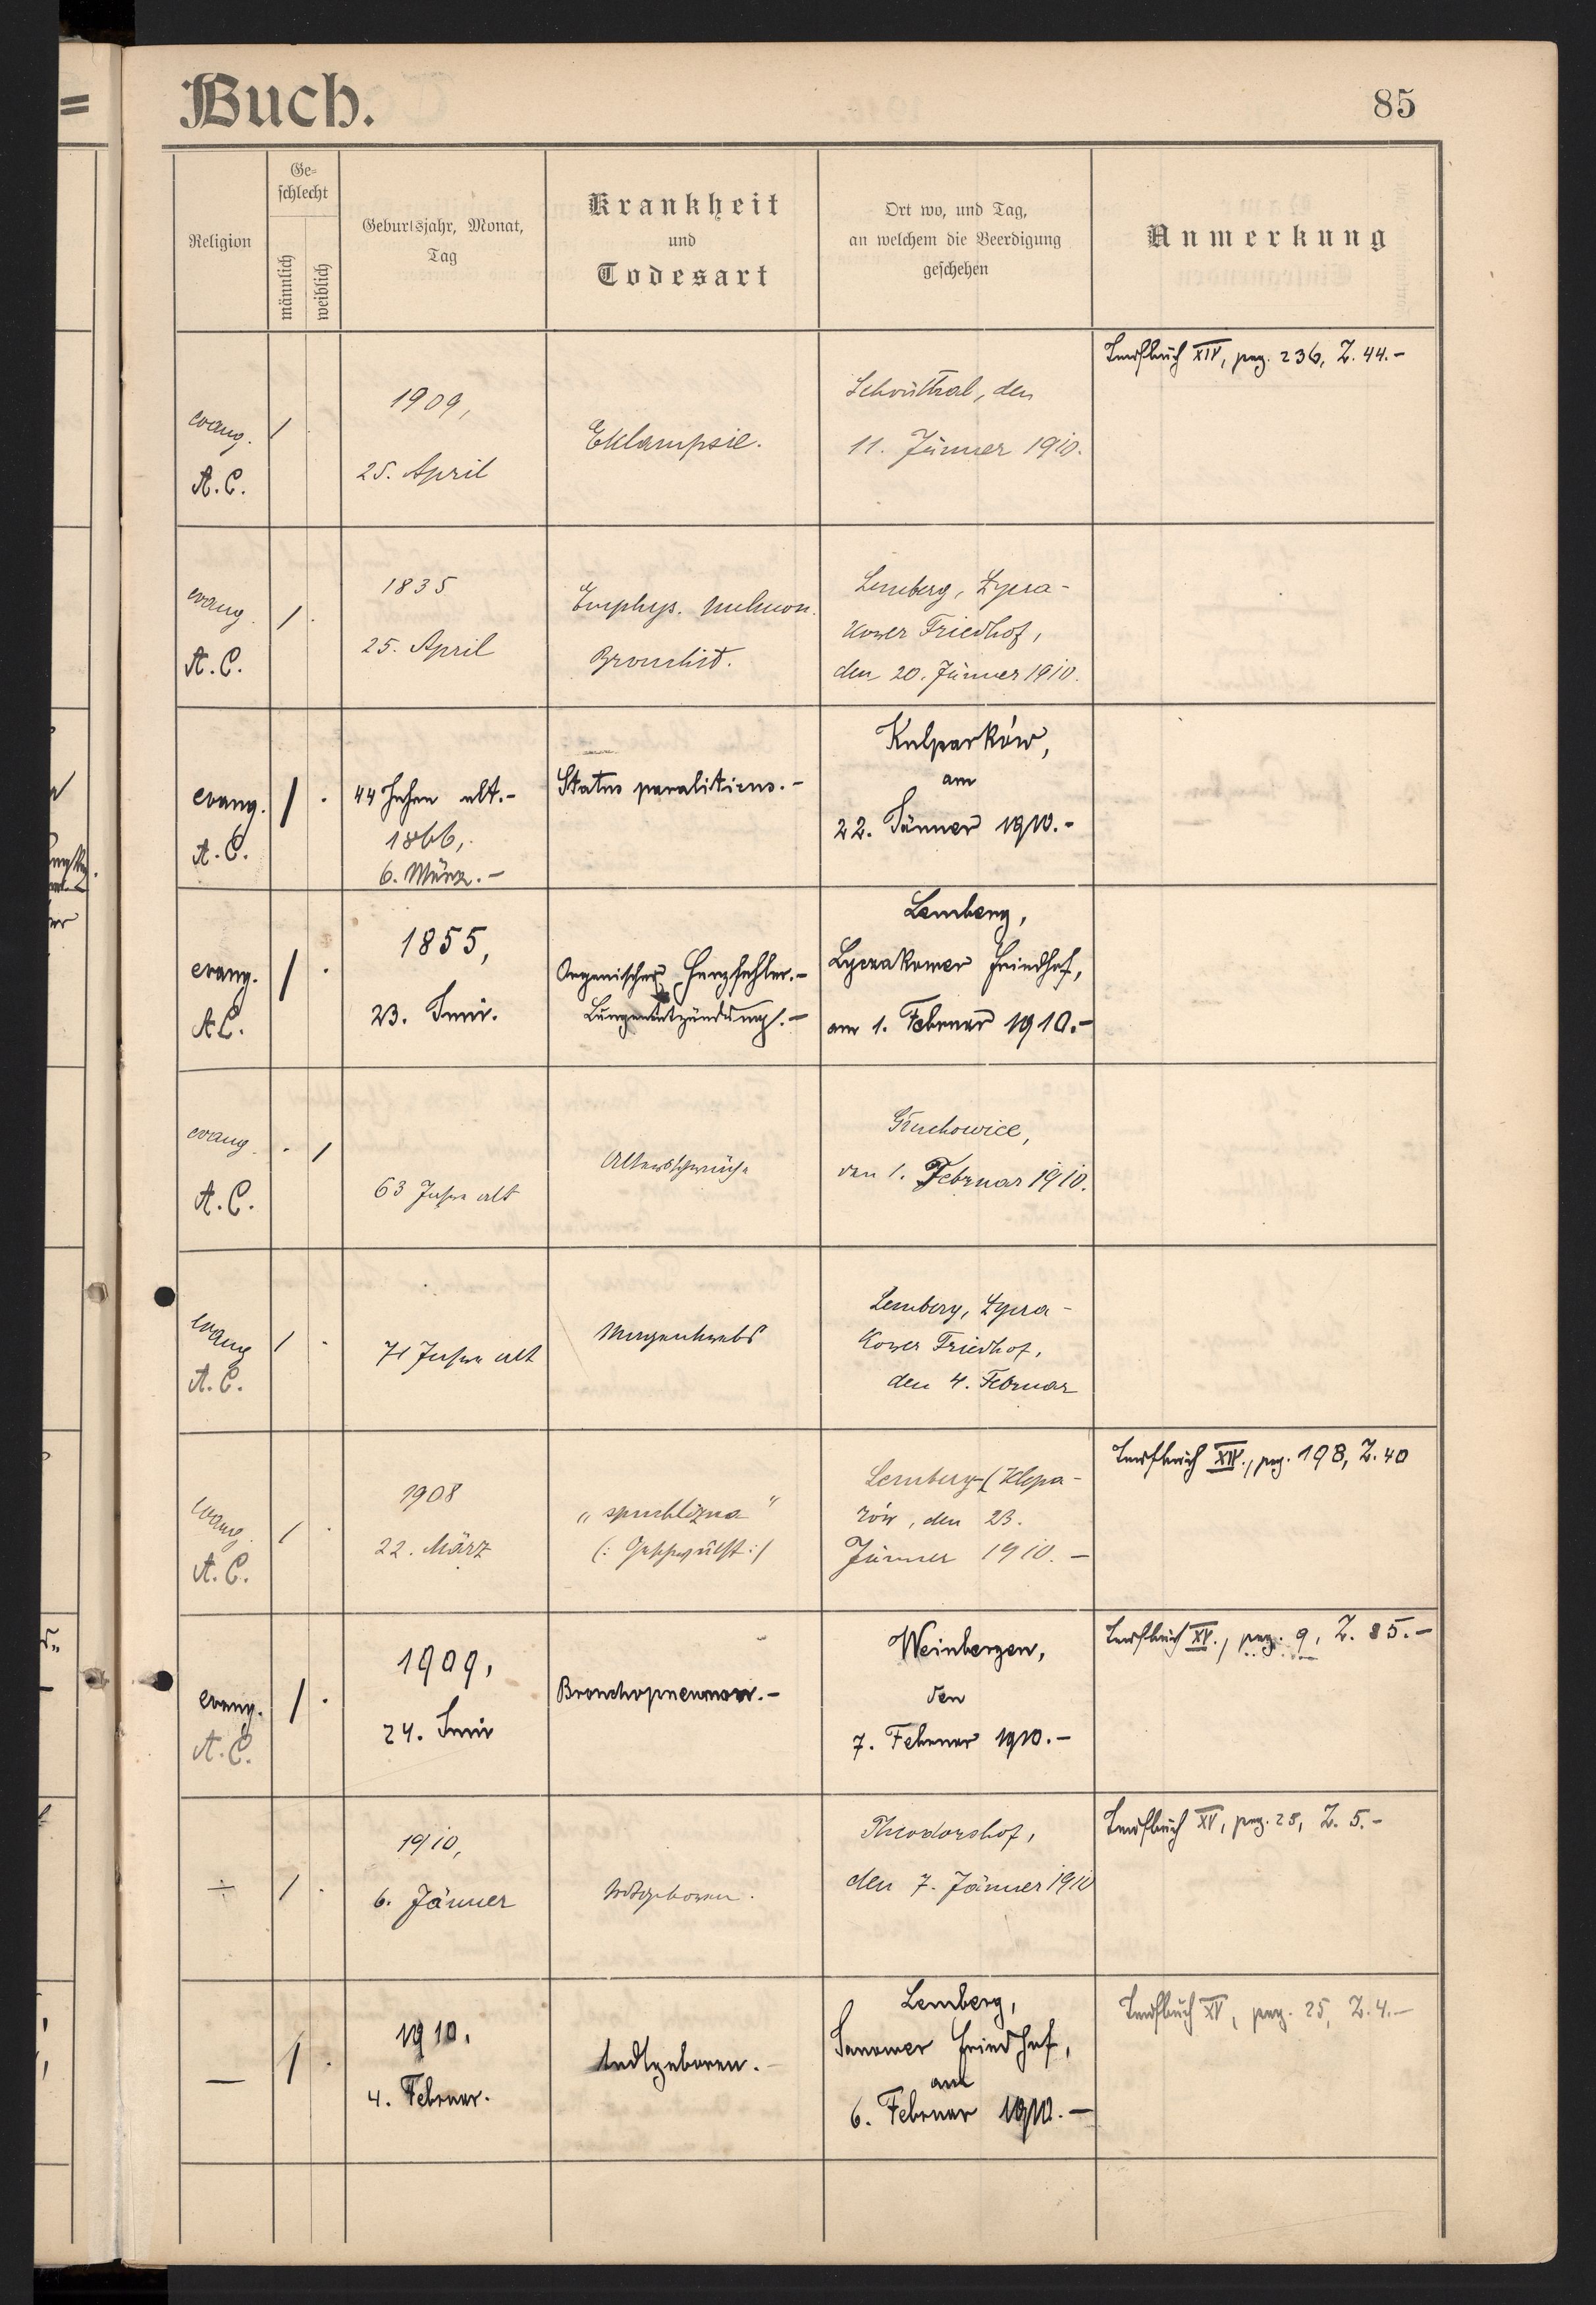 Buch.
85
Religion
Ge-
schlecht
männlich
weiblich
Geburtsjahr, Monat,
Tag
Krankheit
und
Todesart
Ort wo, und Tag,
an welchem die Beerdigung
geschehen
Anmerkung
evang.
A.C.
1
1909,
25. April
Eklampsie.
Schönthal, den
11. Jänner 1910.
Taufbuch XIV, pag. 236, Z. 44.-
evang.
A.C.
1 .
1835
25. April
Emphys. pulmon.
Bronchit.
Lemberg, Łycza-
kower Friedhof,
den 20. Jänner 1910.
evang.
A.C.
1 .
44 Jahre alt.-
1866,
6. März.-
Status paraliticus.-
Kulparków,
am
22. Jänner 1910.-
evang.
A.C.
1 .
1855,
23. Juni.
Organischer Herzfehler.-
Lungenentzündung.-
Lemberg,
Lyczakower Friedhof,
am 1. Februar 1910.-
evang.
A.C.
. 1
63 Jahre alt
Altersschwäche
den 1. Februar 1910.
evang
A.C.
1 .
71 Jahre alt
Magenkrebs
Lemberg, Łycza-
kower Friedhof,
den 4. Februar
evang.
A.C.
1 .
1908
22. März
„ spuchlizna "
(: Geschwulst :)
Lemberg-(Klepa-
rów, den 23.
Jänner 1910.-
Taufbuch XIV., pag. 198, Z. 40
evang.
A.C.
1 .
1909,
24. Juni
Bronchopneumon.-
Weinbergen,
den
7. Februar 1910.-
Taufbuch XV., pag. 9, Z. 85.-
÷
1 .
1910,
6. Jänner
totgeboren.
Theodorshof,
den 7. Jänner 1910
Taufbuch XV, pag. 25, Z. 5.-
—
1 .
1910.
4. Februar.
todtgeboren.-
Lemberg,
Janower Friedhof,
am
6. Februar 1910.-
Taufbuch XV, pag. 25, Z. 4.-